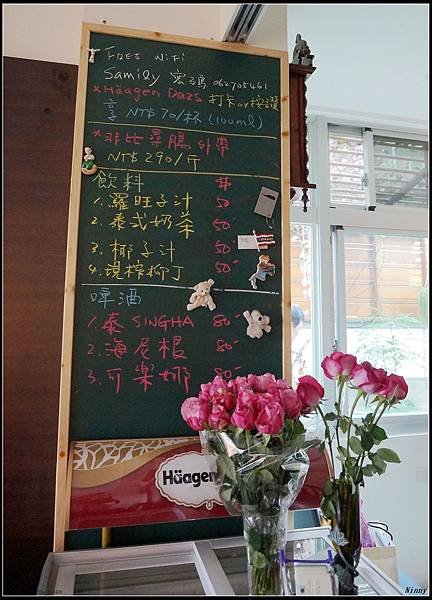 FREE WiFi
Samily 密碼 062705461
*Häagen Dazs 打卡or按讚
享 NT$ 70/杯 (100ml)
*非比尋腸 外帶
NT$ 290/斤
飲料 $
1. 羅旺子汁 50
2. 泰式奶茶 50
3. 椰子汁 50
4. 現榨柳丁 50
啤酒
1. 泰 SINGHA 80
2. 海尼根 80
3. 可樂娜 80
Häagen
Ninny